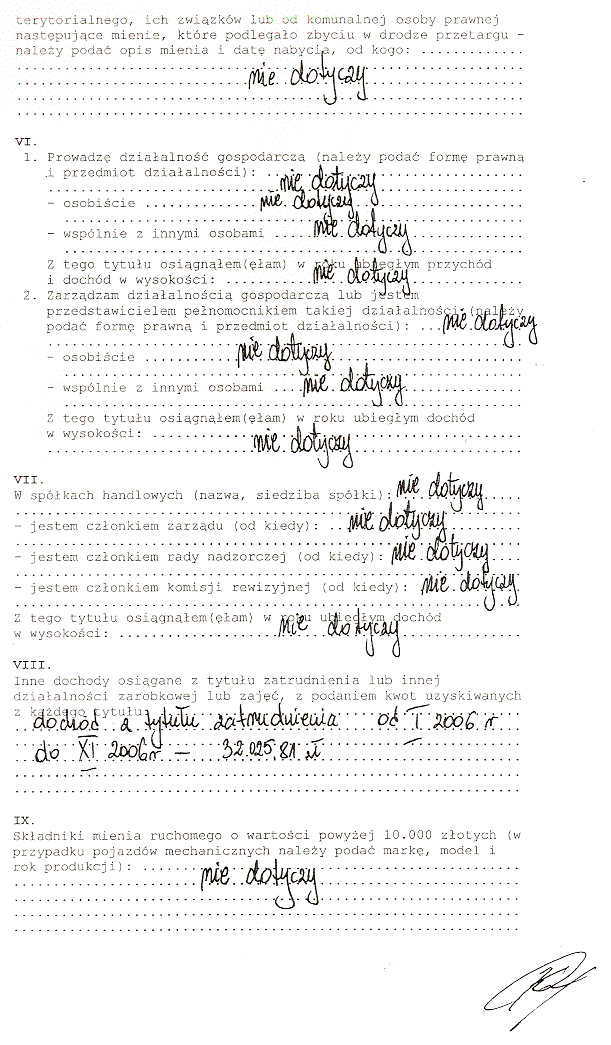 terytorialnego, ich związków lub od komunalnej osoby prawnej
następujące mienie, które podlegało zbyciu w drodze przetargu -
należy podać opis mienia i datę nabycia, od kogo: .............
nie dotyczy
VI.
1. Prowadzę działalność gospodarczą (należy podać formę prawną
i przedmiot działalności): nie dotyczy
- osobiście nie dotyczy
- wspólnie z innymi osobami nie dotyczy
Z tego tytułu osiągnąłem(ęłam) w roku ubiegłym przychód
i dochód w wysokości: nie dotyczy
2. Zarządzam działalnością gospodarczą lub jestem
przedstawicielem pełnomocnikiem takiej działalności (należy
podać formę prawną i przedmiot działalności): nie dotyczy
- osobiście nie dotyczy
- wspólnie z innymi osobami nie dotyczy
Z tego tytułu osiągnąłem(ęłam) w roku ubiegłym dochód
w wysokości: nie dotyczy
VII.
W spółkach handlowych (nazwa, siedziba spółki): nie dotyczy
- jestem członkiem zarządu (od kiedy): nie dotyczy
- jestem członkiem rady nadzorczej (od kiedy): nie dotyczy
- jestem członkiem komisji rewizyjnej (od kiedy): nie dotyczy
Z tego tytułu osiągnąłem(ęłam) w roku ubiegłym dochód
w wysokości: nie dotyczy
VIII.
Inne dochody osiągane z tytułu zatrudnienia lub innej
działalności zarobkowej lub zajęć, z podaniem kwot uzyskiwanych
z każdego tytułu:
dochód z tytułu zatrudnienia od I 2006 r
do XI 2006r - 32.025,81 zł
IX.
Składniki mienia ruchomego o wartości powyżej 10.000 złotych (w
przypadku pojazdów mechanicznych należy podać markę, model i
rok produkcji): nie dotyczy